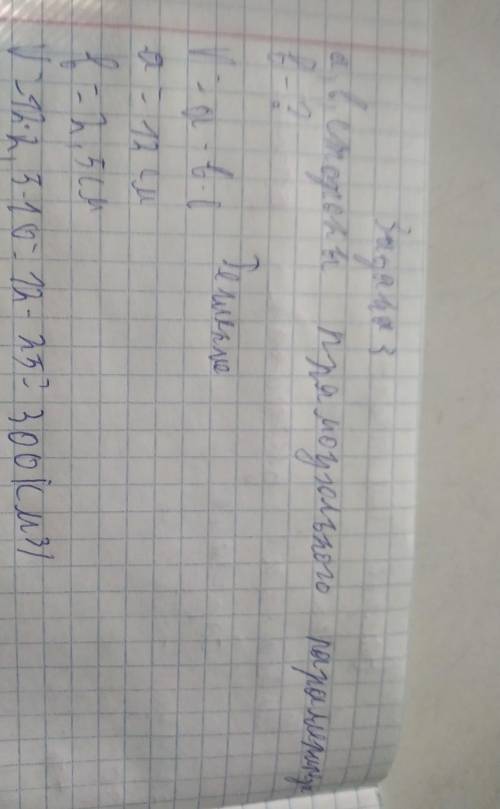 Задача 3
а, в стороны прямоугольного паралепип
в - ?
Решение
V - a · b · c
a = 12 см
b = 2,5 см
V = 12 · 2,5 · 10 = 12 · 25 = 300 (см3)